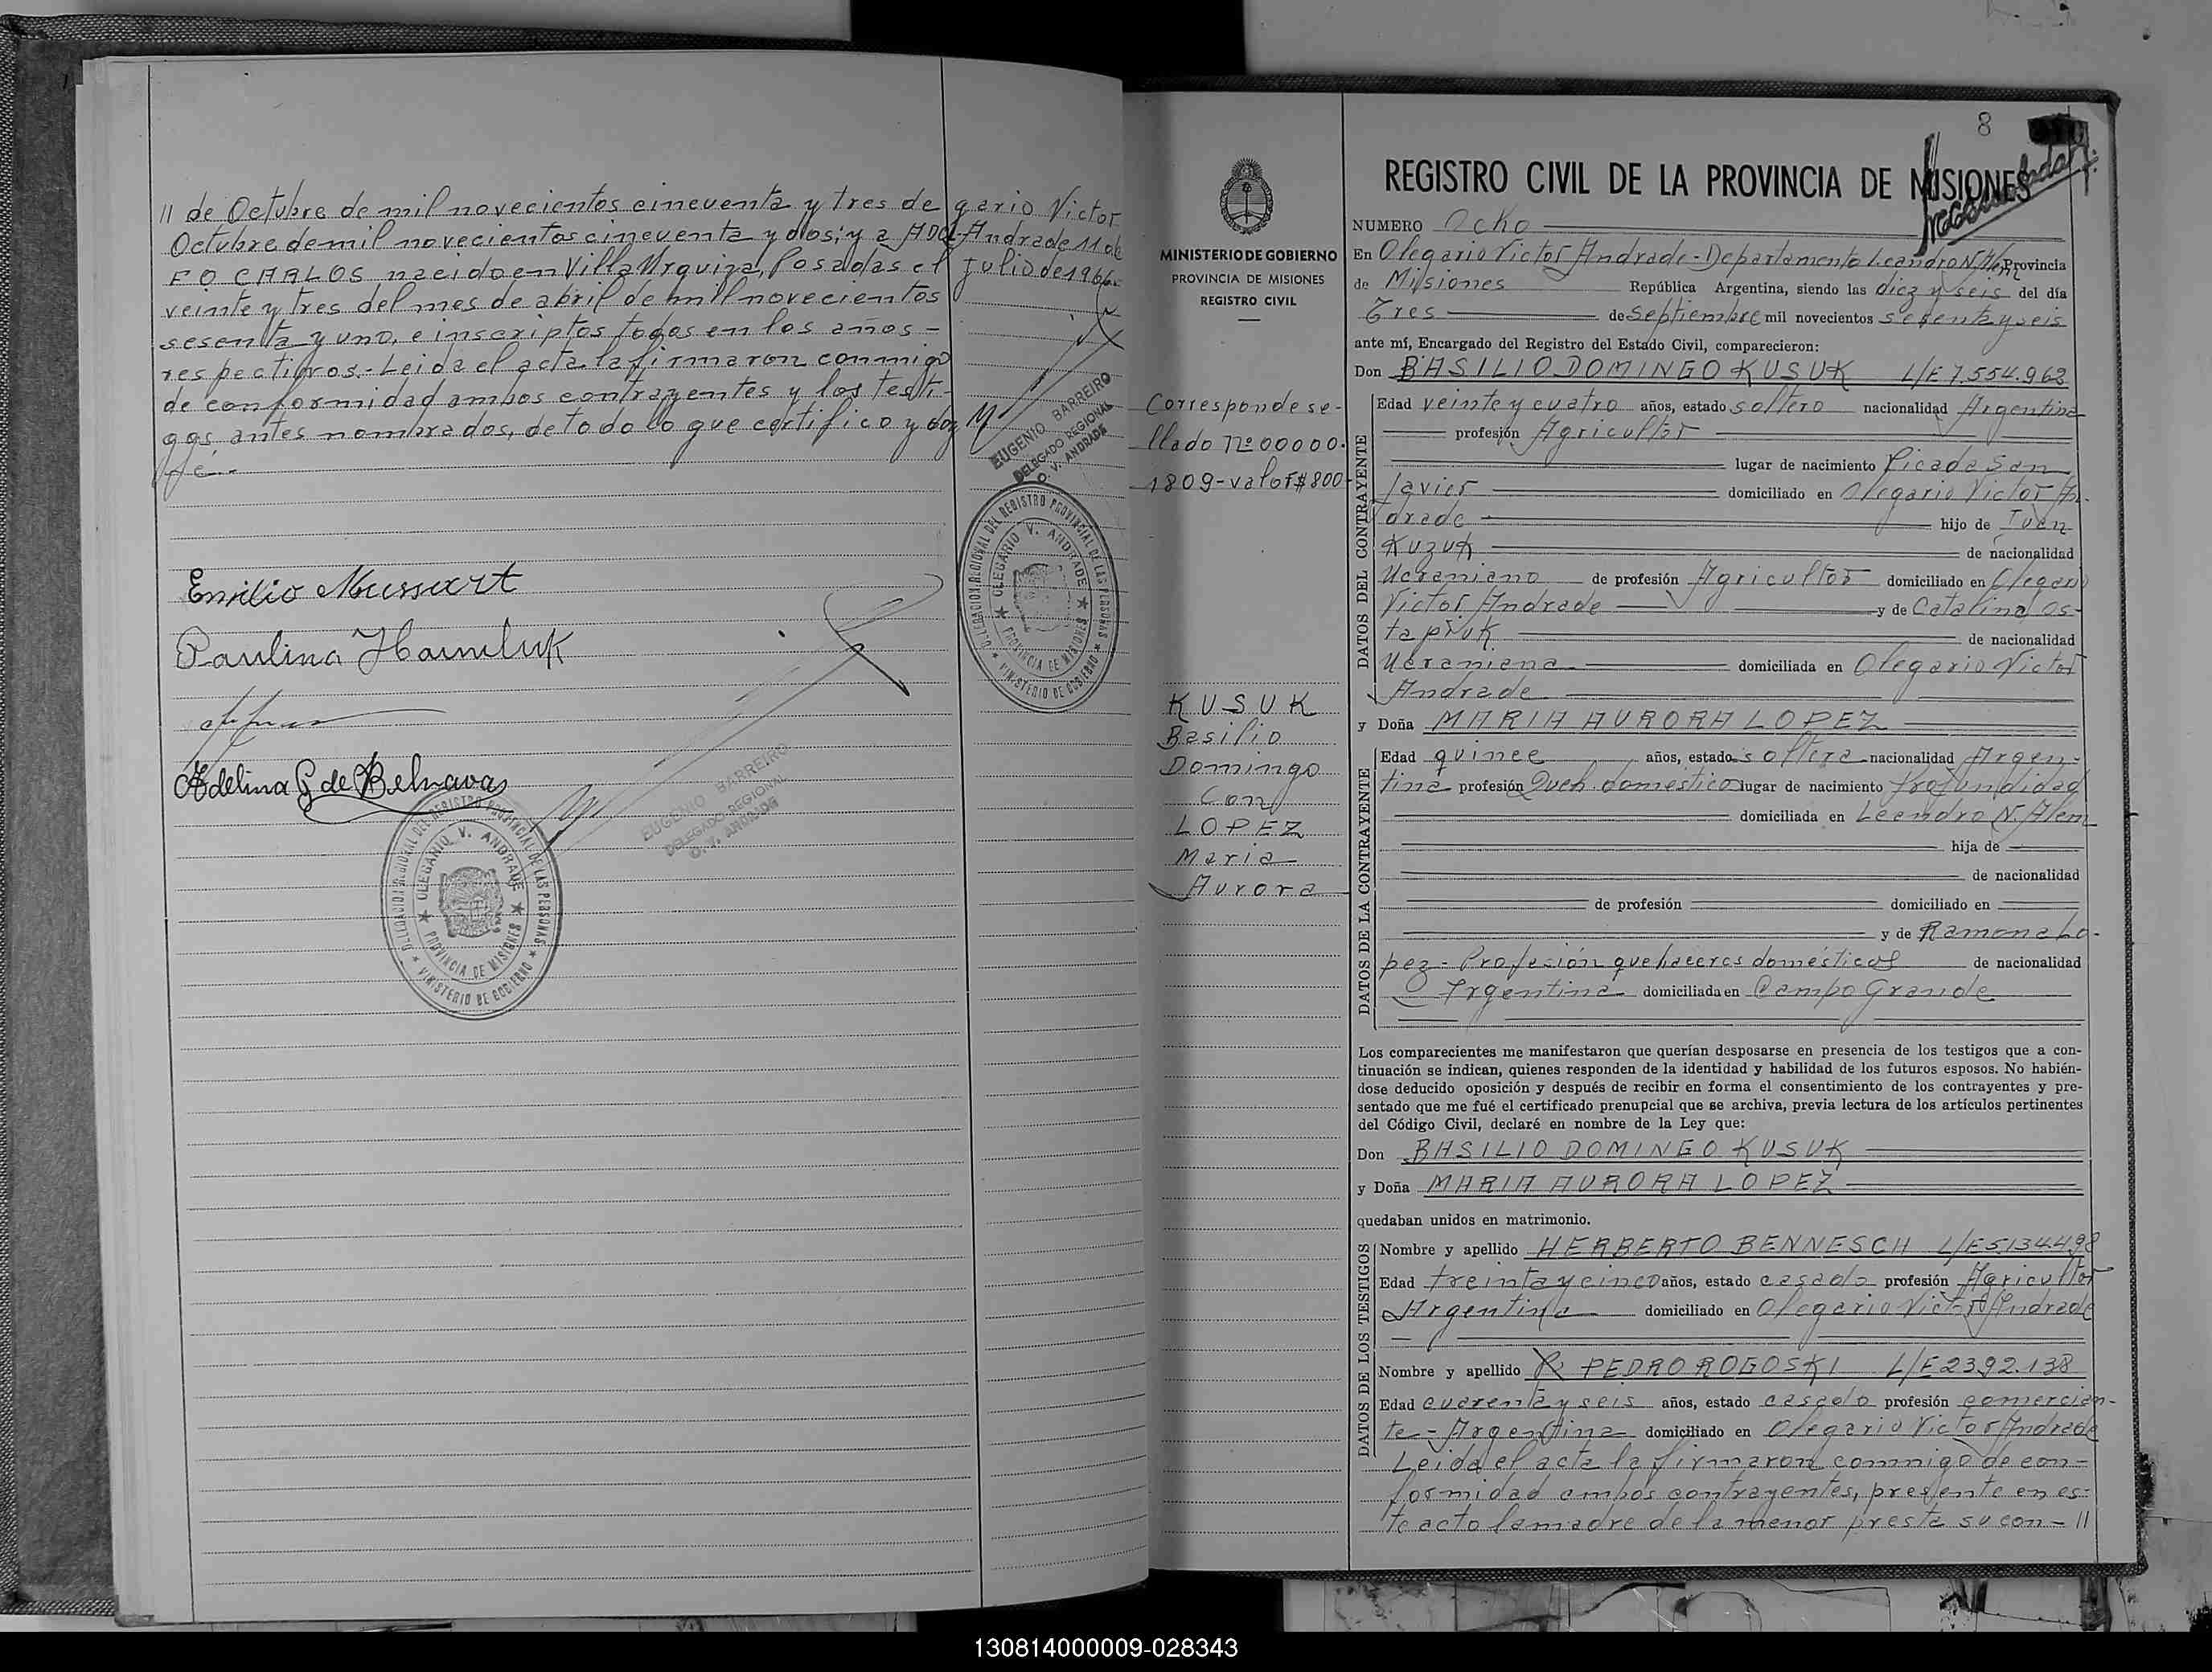 11 de Octubre de mil novecientos cincuenta y tres de
Octubre de mil novecientos cincuenta y dos; y a ADOL-
FO CARLOS nacido en Villa Urquiza, Posadas el
veinte y tres del mes de abril de mil novecientos
sesenta y uno, e inscriptos todos en los años -
respectivos.- Leida el acta la firmaron conmigo
de conformidad ambos contrayentes y los testi-
gos antes nombrados, de todo lo que certifico y doy
fé.-
gario Victor
Andrade 11 de
Julio de 1966.-
EUGENIO BARREIRO
DELEGADO REGIONAL
O. V. ANDRADE
DELEGACION REGIONAL DEL REGISTRO PROVINCIAL DE LAS PERSONAS
OLEGARIO V. ANDRADE
PROVINCIA DE MISIONES
MINISTERIO DE GOBIERNO
Emilio
Paulina
Adelina G de Belnavas
EUGENIO BARREIRO
DELEGADO REGIONAL
O. V. ANDRADE
DELEGACION REGIONAL DEL REGISTRO PROVINCIAL DE LAS PERSONAS
OLEGARIO V. ANDRADE
PROVINCIA DE MISIONES
MINISTERIO DE GOBIERNO
MINISTERIO DE GOBIERNO
PROVINCIA DE MISIONES
REGISTRO CIVIL
Corresponde se-
llado Nº 00000.
1809-valor $800-
KUSUK
Basilio
Domingo
Con
LOPEZ
Maria
Aurora
8
REGISTRO CIVIL DE LA PROVINCIA DE MISIONES
NUMERO Ocho
En Olegario Victor Andrade - Departamento Leandro N. Alem Provincia
de Misiones República Argentina, siendo las diez y seis del día
Tres de Septiembre mil novecientos sesenta y seis
ante mí, Encargado del Registro del Estado Civil, comparecieron:
Don BASILIO DOMINGO KUSUK L/E 7.554.963
DATOS DEL CONTRAYENTE
Edad veinte y cuatro años, estado soltero nacionalidad Argentina
profesión Agricultor
lugar de nacimiento Picada San
Javier domiciliado en Olegario Victor An-
drade hijo de Iván
Kuzuk de nacionalidad
Ucraniano de profesión Agricultor domiciliado en Olegario
Victor Andrade y de Catalina Os-
tapiuk de nacionalidad
Ucraniana domiciliada en Olegario Victor
Andrade
y Doña MARIA AURORA LOPEZ
DATOS DE LA CONTRAYENTE
Edad quince años, estado soltera nacionalidad Argen-
tina profesión Queh. domestico lugar de nacimiento Profundidad
domiciliada en Leandro N. Alem
hija de
de nacionalidad
de profesión domiciliado en
y de Ramona Lo-
pez - Profesión quehaceres domésticos de nacionalidad
Argentina domiciliada en Campo Grande
Los comparecientes me manifestaron que querían desposarse en presencia de los testigos que a con-
tinuación se indican, quienes responden de la identidad y habilidad de los futuros esposos. No habién-
dose deducido oposición y después de recibir en forma el consentimiento de los contrayentes y pre-
sentado que me fué el certificado prenupcial que se archiva, previa lectura de los artículos pertinentes
del Código Civil, declaré en nombre de la Ley que:
Don BASILIO DOMINGO KUSUK
y Doña MARIA AURORA LOPEZ
quedaban unidos en matrimonio.
DATOS DE LOS TESTIGOS
Nombre y apellido HERBERTO BENNESCH L/E 5.134.498
Edad treinta y cinco años, estado casado profesión Agricultor
Argentina domiciliado en Olegario Victor Andrade
Nombre y apellido PEDRO ROGOSKI L/E 2392.138
Edad cuarenta y seis años, estado casado profesión comercian-
te - Argentina domiciliado en Olegario Victor Andrade
Leida el acta la firmaron conmigo de con-
formidad ambos contrayentes, presente en es-
te acto la madre de la menor presta su con- 11
130814000009-028343